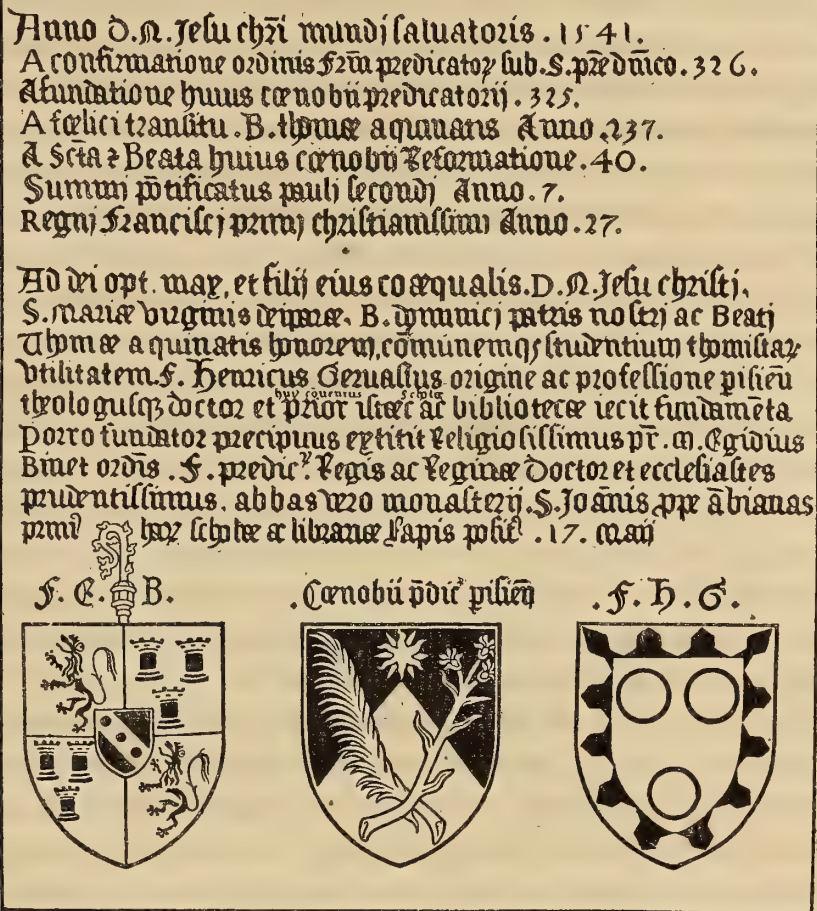 Anno D.N. Jesu chr̄i mundi saluatoris . 1541.
A confirmatione ordinis Fr̄m predicatoꝝ sub. S. p̄re dn̄ico. 326.
A fundatione huius cœnobii predicatorij . 325.
A fœlici transitu . B. thomæ aquinatis Anno .237.
A Sc̄ta ⁊ Beata huius cœnobii Reformatione . 40.
Summi pōtificatus pauli secondi Anno . 7.
Regni Francisci primi christianissimi Anno . 27.
Ad dei opt. max. et filij eius coæqualis. D. N. Jesu christi,
S. mariæ virginis deiparæ, B. dominici patris nostri ac Beati
Thomæ aquinatis honorem, cōmunemqꝫ studentium thomistaꝝ
vtilitatem. F. Henricus Geruasius origine ac professione pisiēn
huiꝰ cōuentus scholæ
theologusqꝫ doctor et prior istæc ac bibliotecæ iecit fundamēta
Porro fundator precipuus extitit Religiosissimus pr̄. m. Egidius
Binet ordīs . F. predic. Regis ac Reginæ Doctor et ecclesiastes
prudentissimus, abbas vero monasterij . S. Joānis prope ābianas
primꝰ haꝝ scholæ ac librariæ Lapis posit . 17. maii
F. E. B.
. Cœnobii p̄dic pisiēn
. F. H. G.